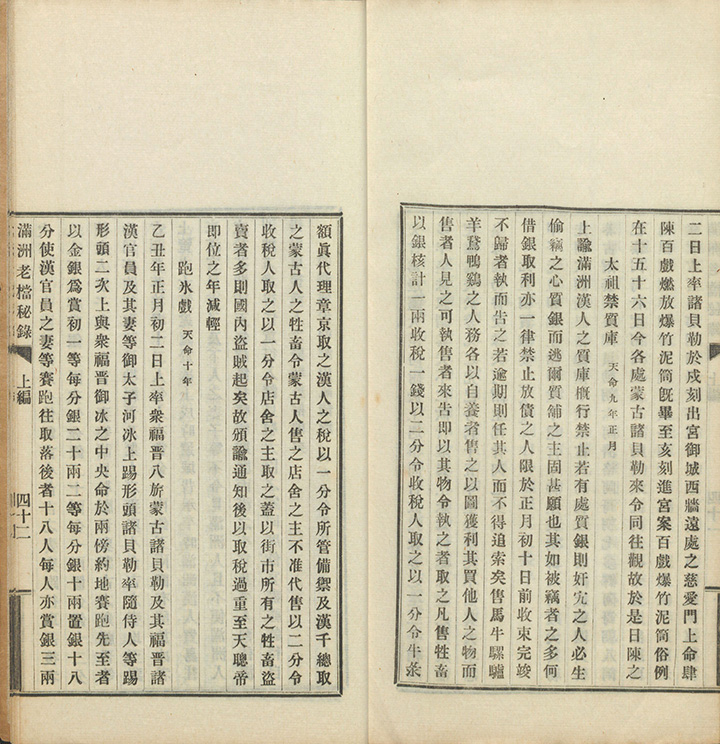 二日上率諸貝勒於戌刻出宮御城西牆遠處之慈愛門上命肆
陳百戲燃放爆竹泥筒旣畢至亥刻進宮案百戲爆竹泥筒俗例
在十五十六日今各處蒙古諸貝勒來令同往觀故於是日陳之
太祖禁質庫 天命九年正月
上諭滿洲漢人之質庫槪行禁止若有處質銀則奸宄之人必生
偷竊之心質銀而逃爾質舖之主固甚願也其如被竊者之多何
借銀取利亦一律禁止放債之人限於正月初十日前收束完竣
不歸者執而告之若逾期則任其人而不得追索矣售馬牛騾驢
羊鵞鴨鷄之人務各以自養者售之以圖獲利其買他人之物而
售者人見之可執售者來告即以其物令執之者取之凡售牲畜
以銀核計一兩收稅一錢以二分令收稅人取之以一分令牛彔
額眞代理章京取之漢人之稅以一分令所管備禦及漢千總取
之蒙古人之牲畜令蒙古人售之店舍之主不准代售以二分令
收稅人取之以一分令店舍之主取之蓋以街市所有之牲畜盜
賣者多則國內盜賊起矣故頒諭通知後以取稅過重至天聰帝
即位之年減輕
跑氷戲 天命十年
乙丑年正月初二日上率衆福晋八旂蒙古諸貝勒及其福晋諸
漢官員及其妻等御太子河氷上踢形頭諸貝勒率隨侍人等踢
形頭二次上與衆福晋御氷之中央命於兩傍約地賽跑先至者
以金銀爲賞初一等每分銀二十兩二等每分銀十兩置銀十八
分使漢官員之妻等賽跑往取落後者十八人每人亦賞銀三兩
滿洲老檔秘錄 上編 四十二